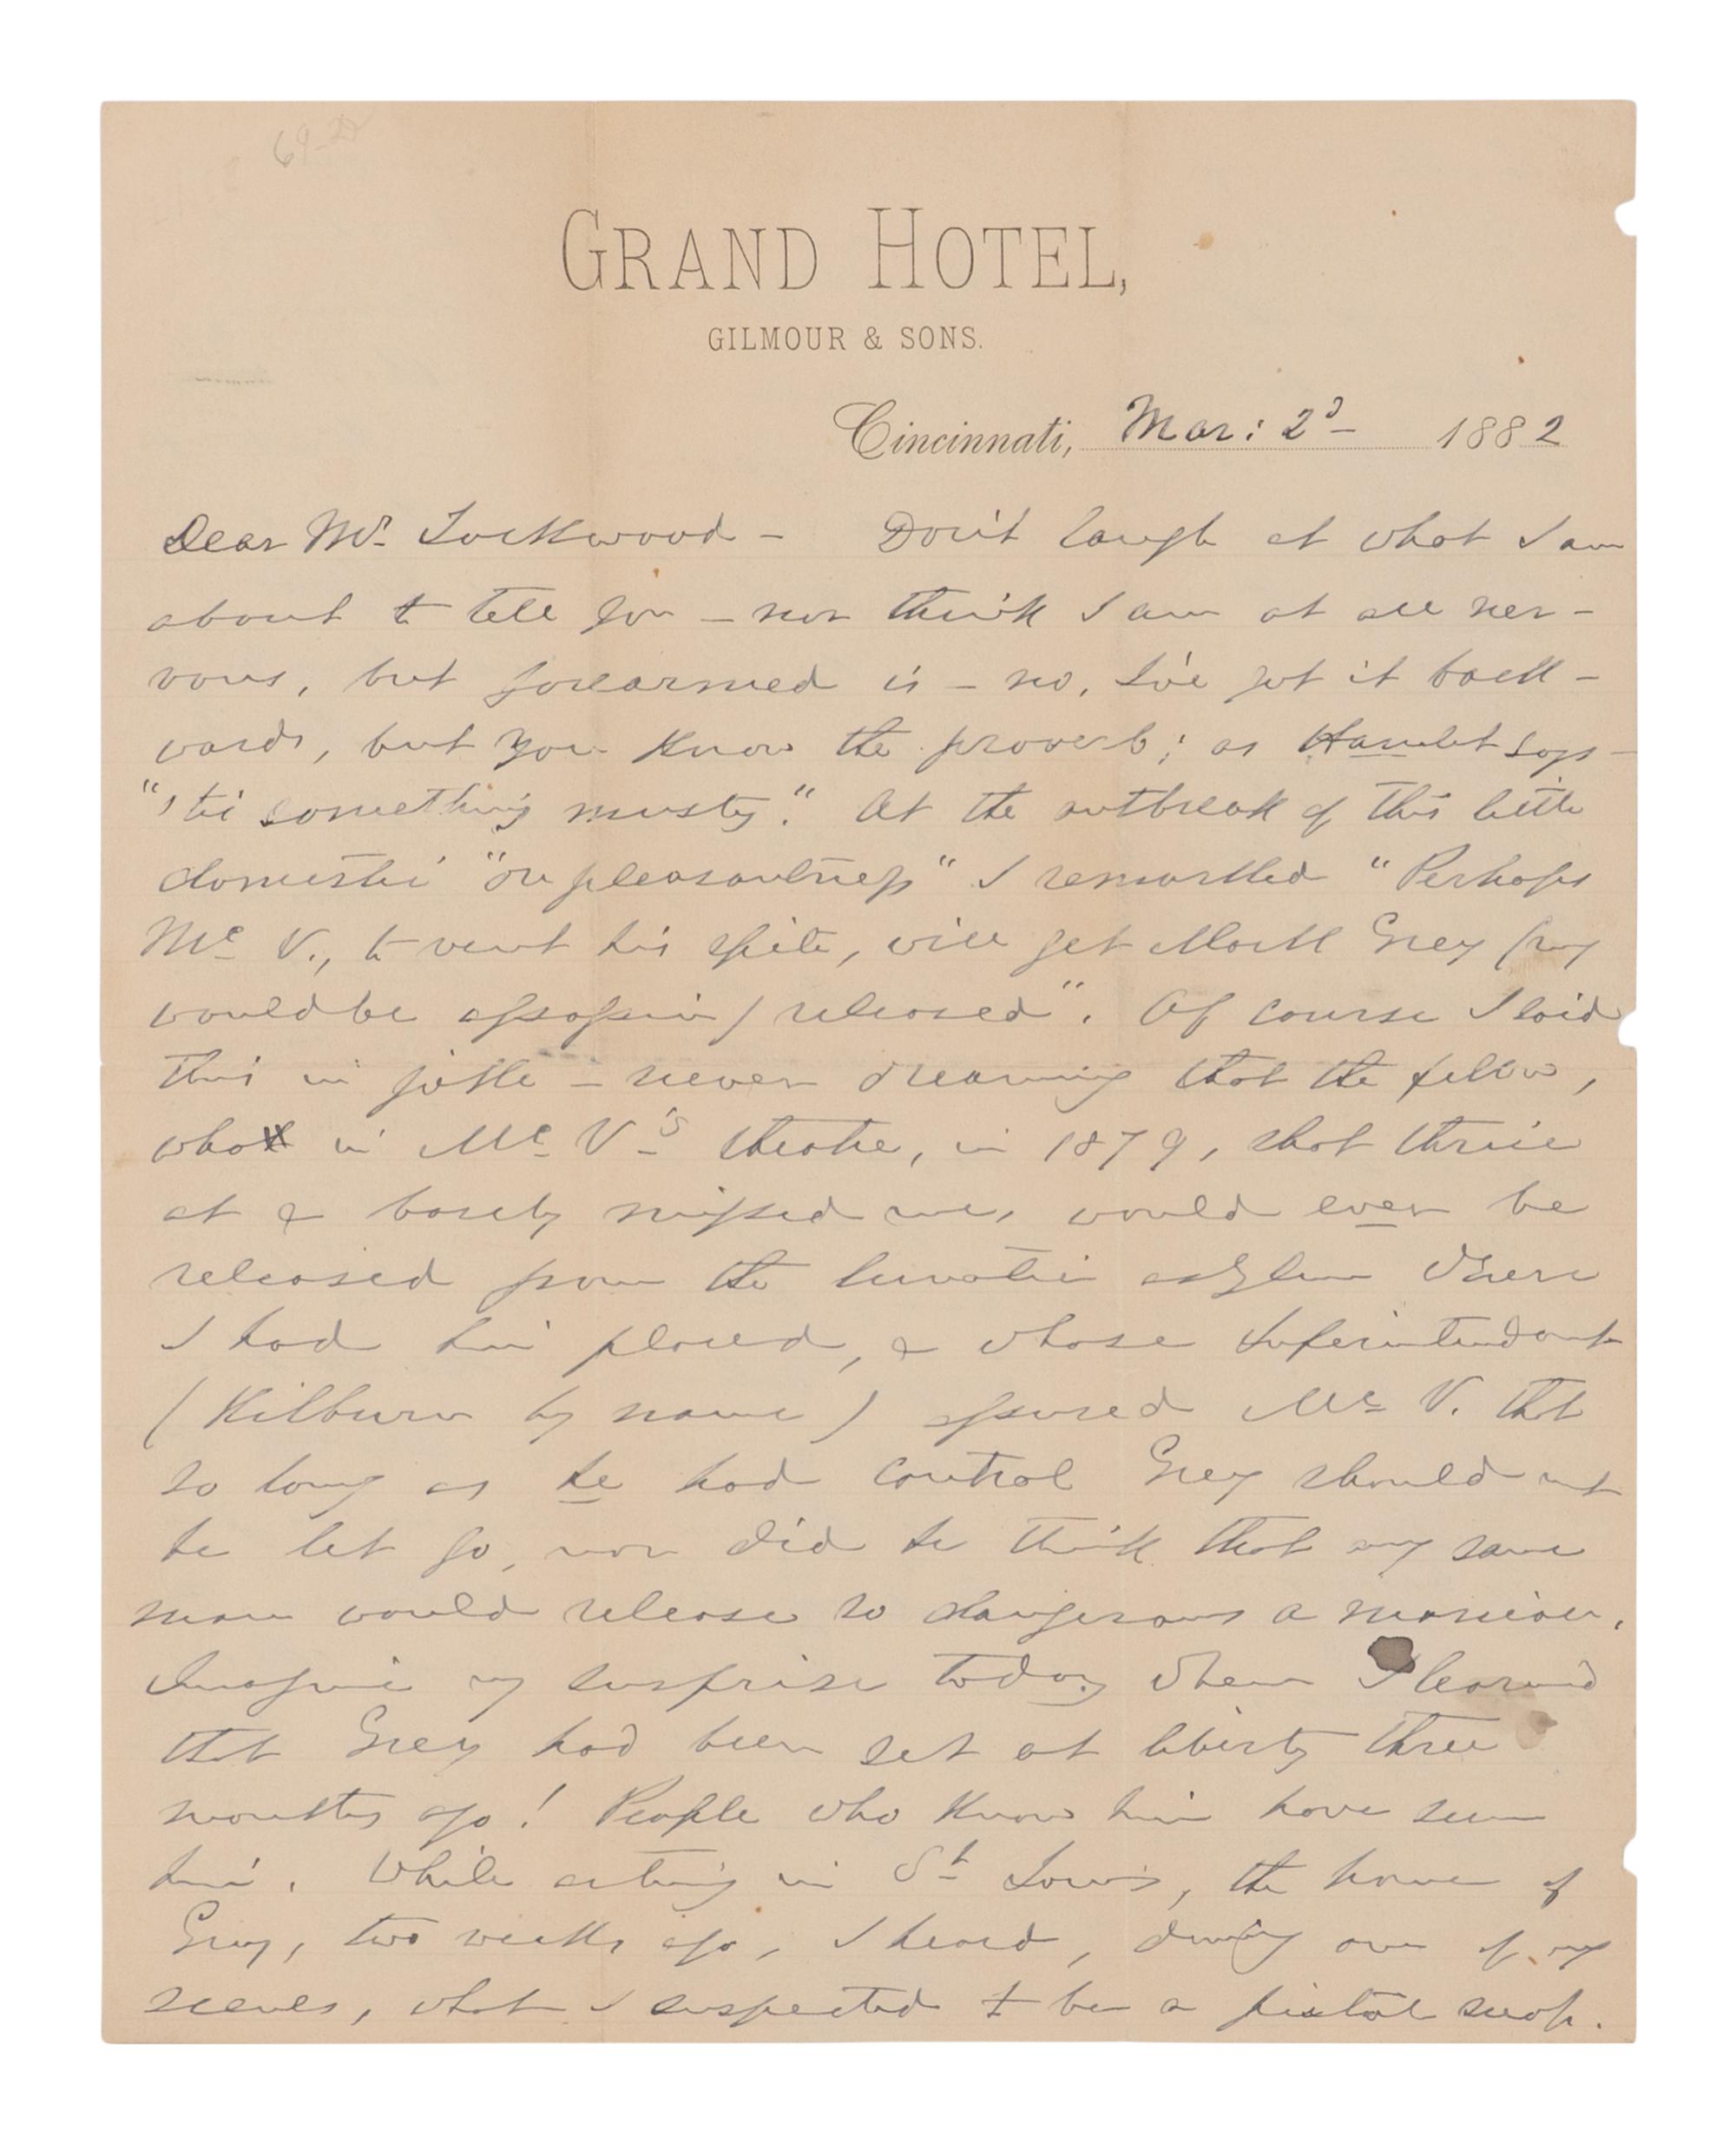 GRAND HOTEL,
GILMOUR & SONS.
Cincinnati, Mar: 2d 1882
Dear Mr. Lockwood - Don't laugh at what I am
about to tell you - nor think I am at all ner-
vous, but forearmed is - no, I've got it back-
wards, but you know the proverb; as Hamlet says -
"'tis something musty." At the outbreak of this little
domestic "onpleasantness" I remarked "Perhaps
Mc V., to vent his spite, will get Mark Grey (my
wouldbe assassin) released". Of course I said
this in joke - never dreaming that the fellow,
who in Mc V's theatre, in 1879, shot thrice
at & barely missed me, would ever be
released from the lunatic asylum where
I had him placed, & whose Superintendant
(Kilburn by name) assured Mc V. that
so long as he had control Grey should not
be let go, nor did he think that any sane
man would release so dangerous a maniac.
Imagine my surprise today when I learned
that Grey had been set at liberty three
months ago! People who know him have seen
him. While acting in St Louis, the home of
Grey, two weeks ago, I heard, during one of my
scenes, what I suspected to be a pistol snap.